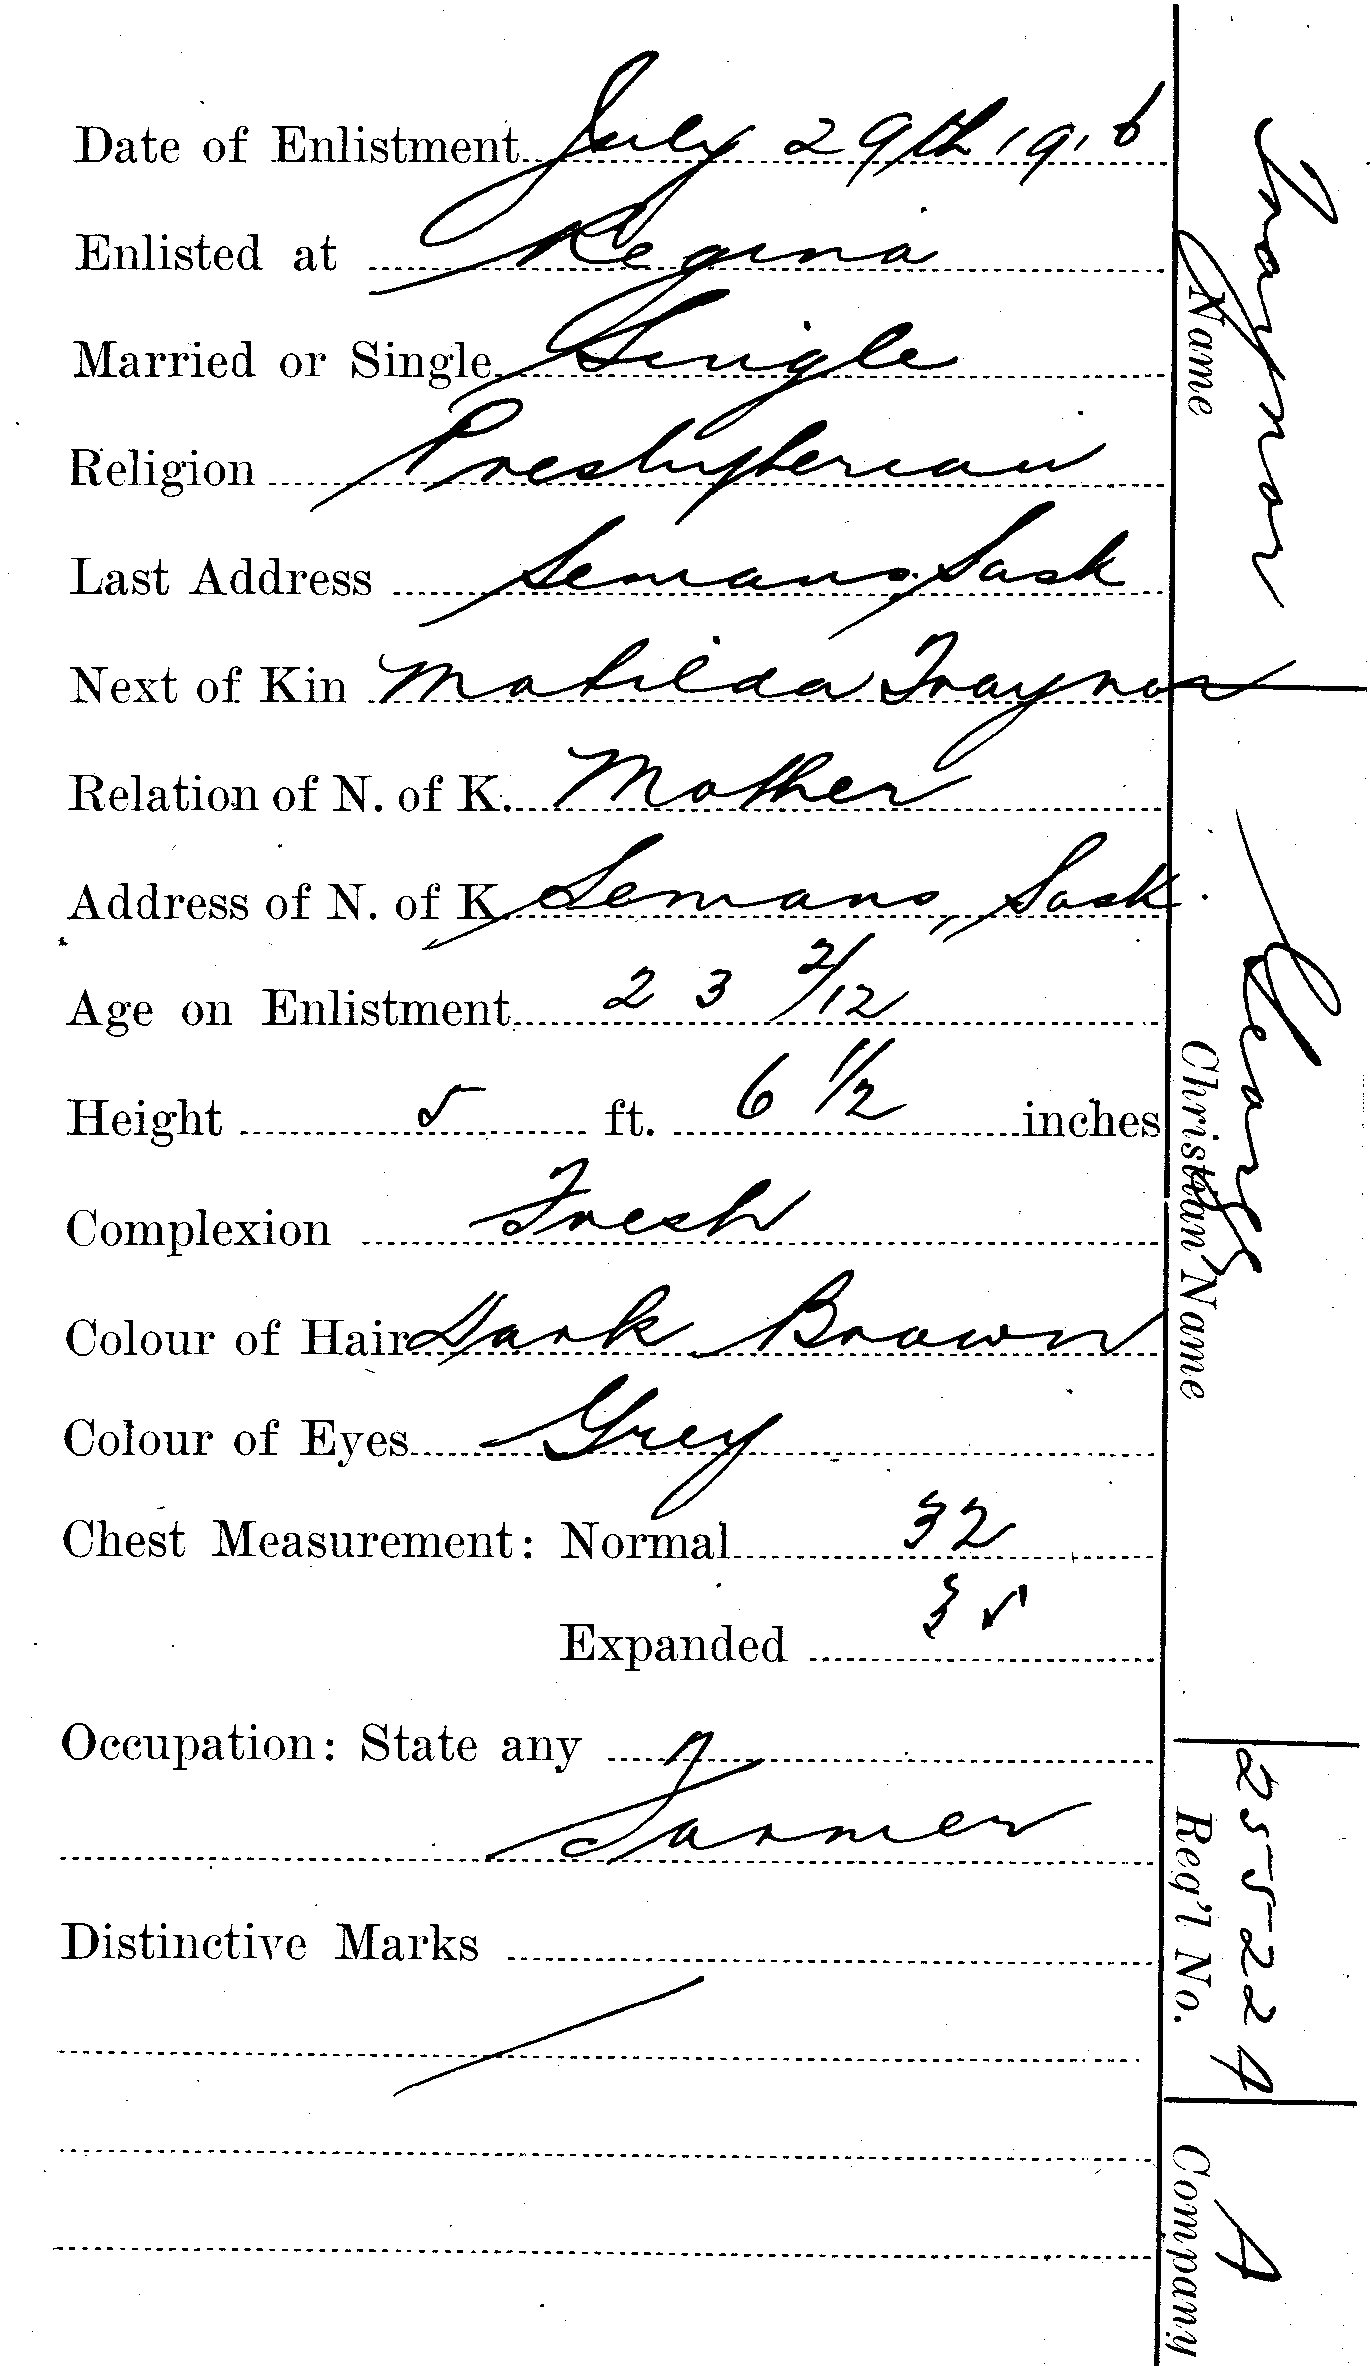 Date of Enlistment July 29th 1916
Enlisted at Regina
Married or Single Single
Religion Presbyterian
Last Address Semans, Sask
Next of Kin Matilda Traynor
Relation of N. of K. Mother
Address of N. of K. Semans, Sask.
Age on Enlistment 23 2/12
Height 5 ft. 6 1/2 inches
Complexion Fresh
Colour of Hair Dark Brown
Colour of Eyes Grey
Chest Measurement: Normal 32
Expanded 35
Occupation: State any
Farmer
Distinctive Marks
Traynor
Name
George
Christian Name
255224
Reg'l No.
A
Company